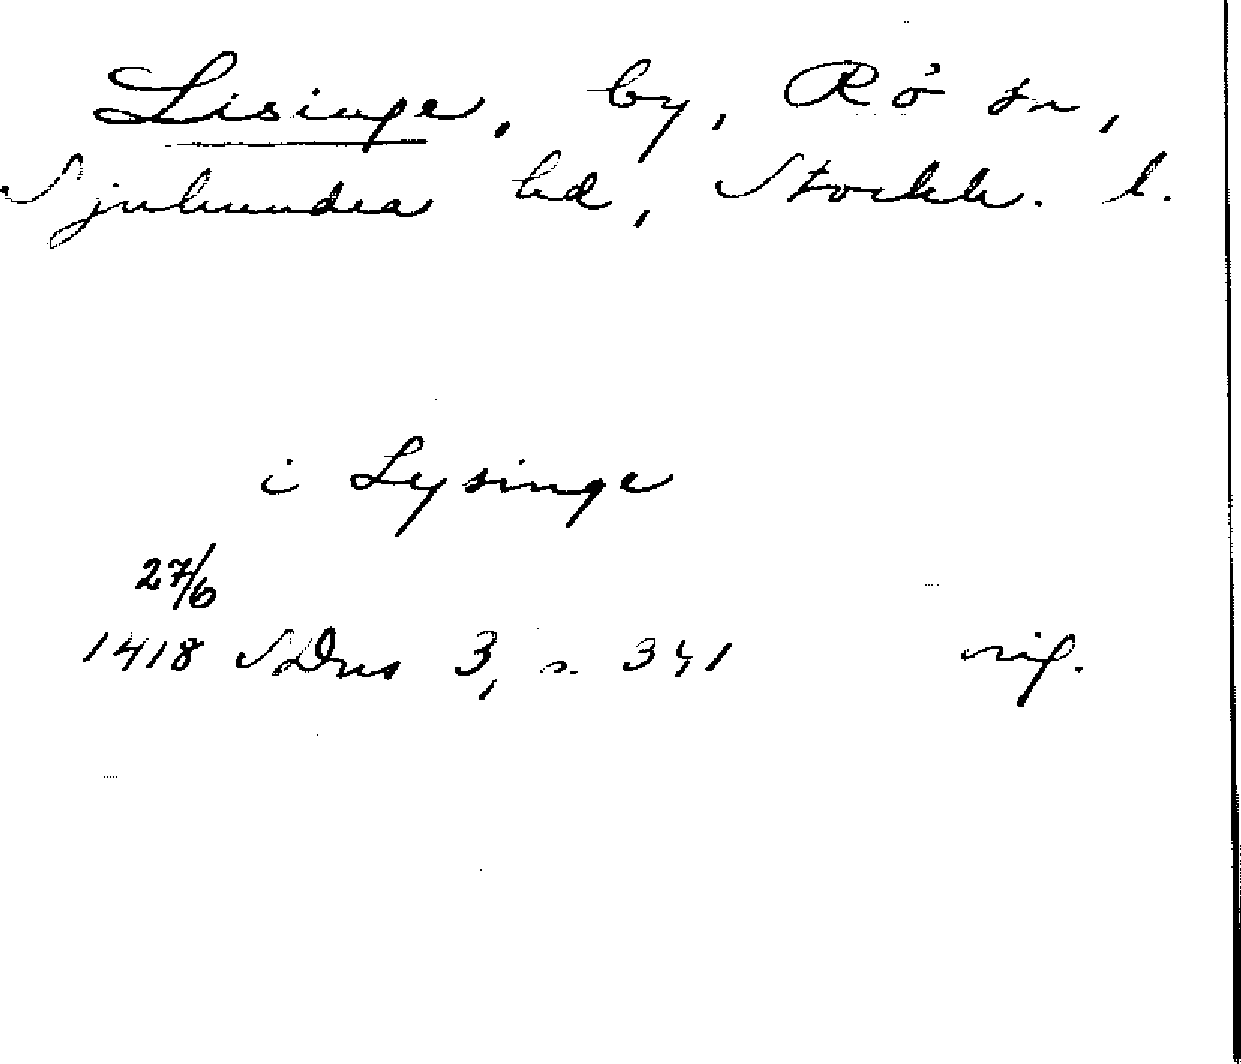 Lisinge, by, Rö sn,
Sjuhundra hd, Stockh. l.
i Lysinge
27/6
1418 SDns 3, s. 341 vif.